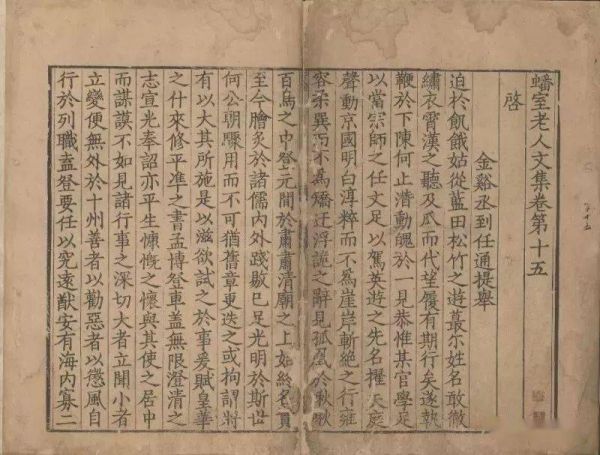 蟠室老人文集卷第十五
啓
金谿丞到任通提舉
迫於飢餓姑從藍田松竹之遊蕞尔姓名敢徹
繡衣霄漢之聽及瓜而代望履有期行矣遂執
鞭於下陳何止潛動魄於一見恭惟某官學足
以當宗師之任文足以駕英游之先名擢天庭
聲動京國明白淳粹而不為崖岸斬絶之行雍
容柔巽而不為矯迂浮詭之辭見孤鳳於啾啾
百鳥之中登元間於肅肅清廟之上如名貫
至今膾炙於諸儒内外踐敭已足光明於斯世
何公朝驟用而不可猶舊章更迭之或拘謂將
有以大其所施是以滋欲試之於事爰賦皇華
之什來修平準之書孟博登車盖無限澄清之
志宣光奉詔亦平生慷慨之懷與其使之居中
而謀謨不如見諸行事之深切大者立聞小者
立變便無外於十州善者以勸惡者以懲風自
行於列職盍登要任以究遠猷安有海内寡二